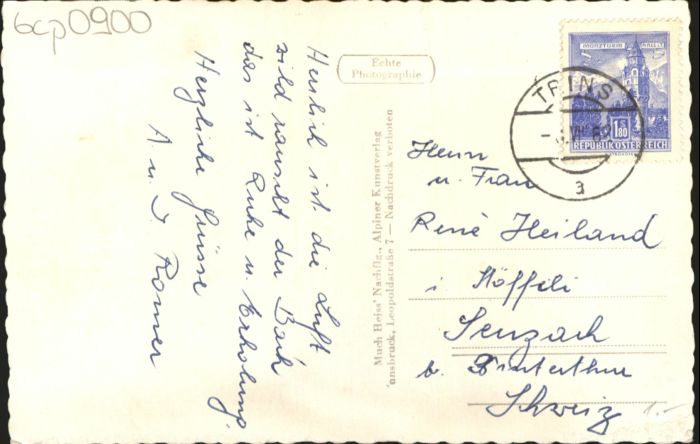 bcp0900
Herrlich ist die Luft
wild rauscht der Bach
das ist Ruhe u Erholung.
Herzliche Grüsse
A. u. J. Romer
Echte
Photographie
Much Heiss' Nachflg., Alpiner Kunstverlag
nnsbruck, Leopoldstraße 7 — Nachdruck verboten
MÜNZTURM HALL I. T.
1.80
REPUBLIK ÖSTERREICH
TRINS
a
Herrn
u. Frau
René Heiland
i Höffeli
Seuzach
b. Winterthur
Schweiz
1.-